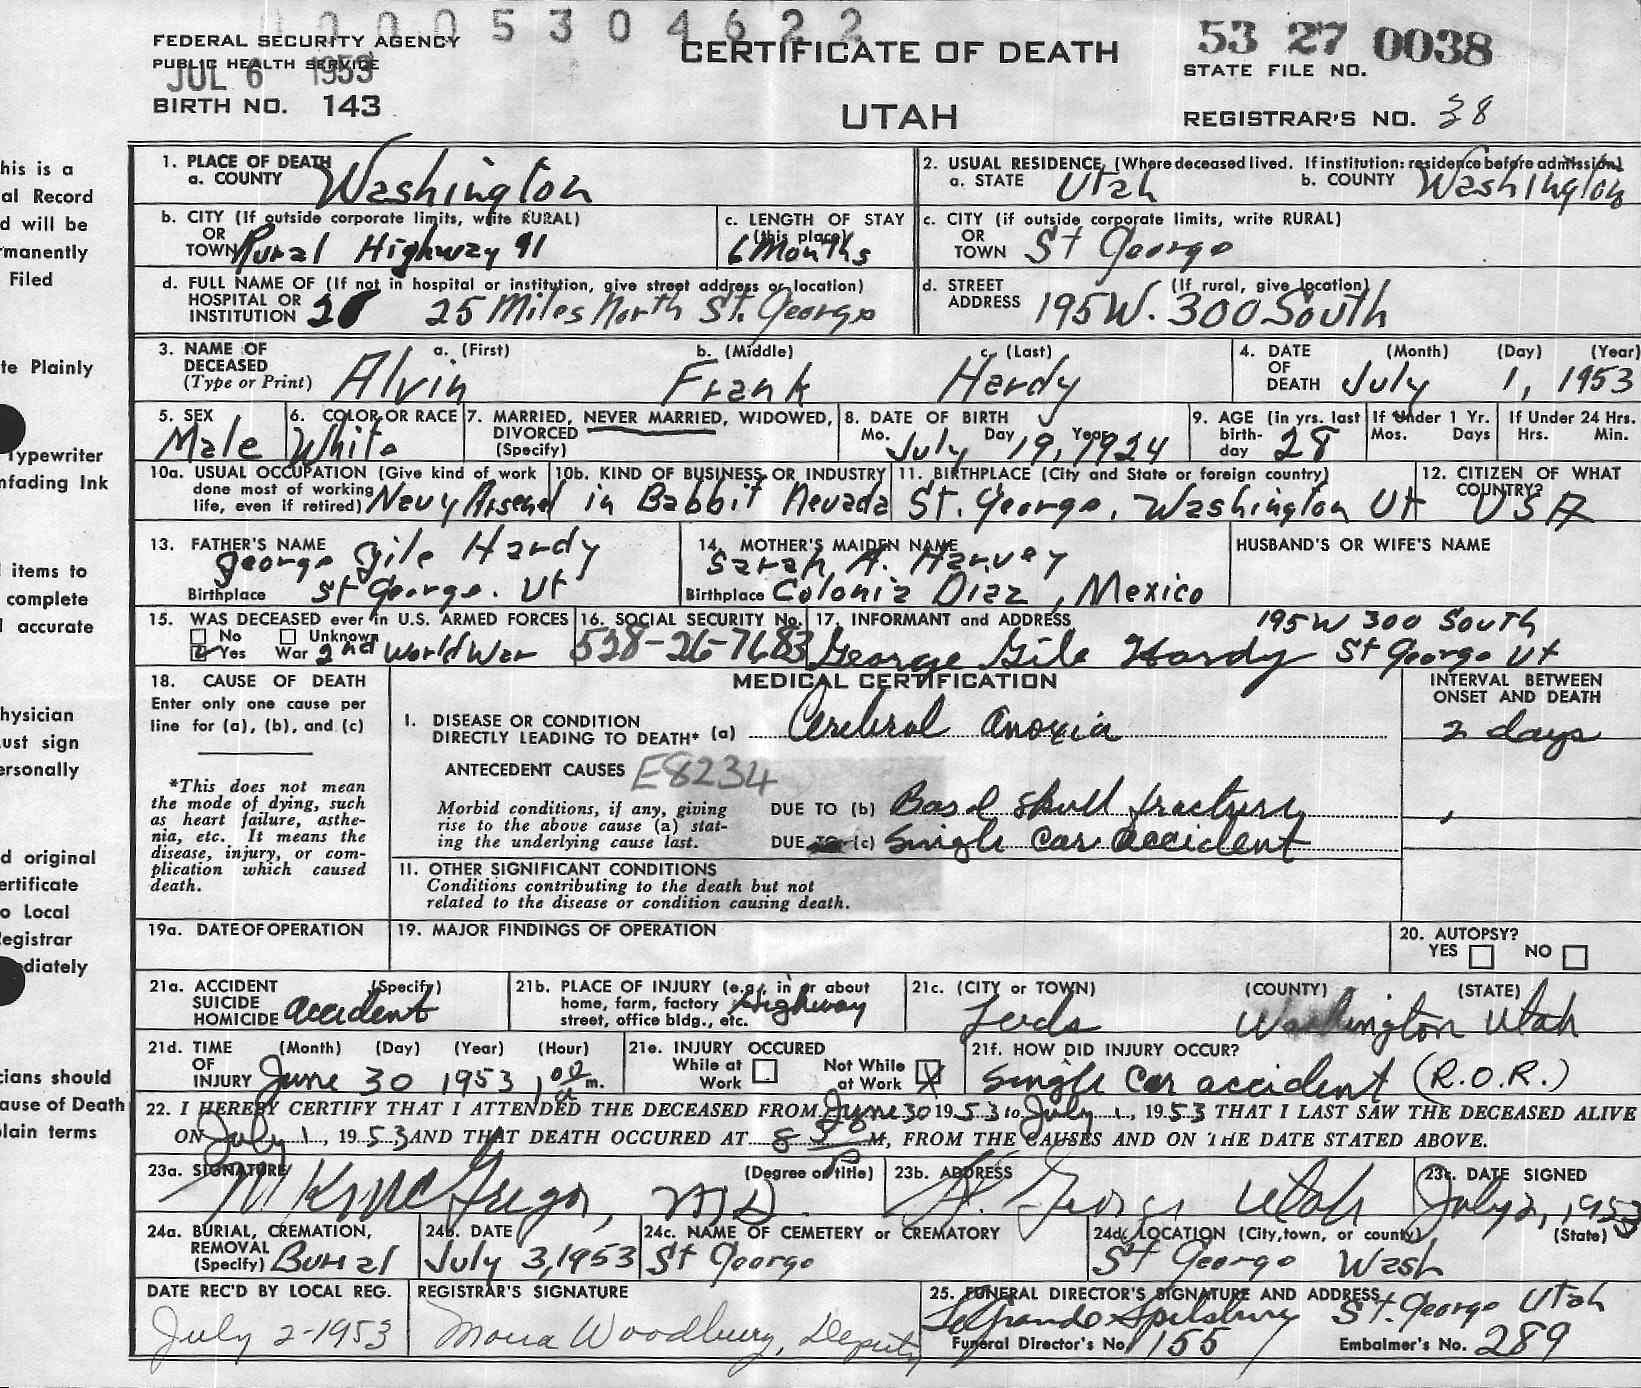 0005304622
FEDERAL SECURITY AGENCY
PUBLIC HEALTH SERVICE
JUL 6 1953
BIRTH NO. 143
CERTIFICATE OF DEATH
UTAH
53 27 0038
STATE FILE NO.
REGISTRAR'S NO. 38
his is a
al Record
d will be
rmanently
Filed
te Plainly
Typewriter
nfading Ink
items to
complete
accurate
hysician
ust sign
ersonally
d original
ertificate
o Local
Registrar
diately
cians should
ause of Death
lain terms
1. PLACE OF DEATH
a. COUNTY Washington
2. USUAL RESIDENCE (Where deceased lived. If institution: residence before admission)
a. STATE Utah b. COUNTY Washington
b. CITY (If outside corporate limits, write RURAL)
OR
TOWN Rural Highway 91
c. LENGTH OF STAY
(this place)
6 Months
c. CITY (if outside corporate limits, write RURAL)
OR
TOWN St George
d. FULL NAME OF (If not in hospital or institution, give street address or location)
HOSPITAL OR
INSTITUTION 25 Miles North St. George
d. STREET (If rural, give location)
ADDRESS 195 W. 300 South
3. NAME OF DECEASED
(Type or Print)
a. (First) Alvin
b. (Middle) Frank
c. (Last) Hardy
4. DATE OF DEATH
(Month) (Day) (Year)
July 1, 1953
5. SEX
Male
6. COLOR OR RACE
White
7. MARRIED, NEVER MARRIED, WIDOWED,
DIVORCED
(Specify)
8. DATE OF BIRTH
Mo. Day Year
July 19, 1924
9. AGE (in yrs. last
birth-
day 28
If Under 1 Yr.
Mos. Days
If Under 24 Hrs.
Hrs. Min.
10a. USUAL OCCUPATION (Give kind of work
done most of working
life, even if retired) Navy Arsenal
10b. KIND OF BUSINESS OR INDUSTRY
in Babbit Nevada
11. BIRTHPLACE (City and State or foreign country)
St. George, Washington Ut
12. CITIZEN OF WHAT
COUNTRY?
USA
13. FATHER'S NAME
George Gile Hardy
Birthplace St George. Ut
14. MOTHER'S MAIDEN NAME
Sarah A. Harvey
Birthplace Colonia Diaz, Mexico
HUSBAND'S OR WIFE'S NAME
15. WAS DECEASED ever in U.S. ARMED FORCES
No Unknown
Yes War 2nd World War
16. SOCIAL SECURITY No.
528-26-7683
17. INFORMANT and ADDRESS 195 W 300 South
George Gile Hardy St George Ut
18. CAUSE OF DEATH
Enter only one cause per
line for (a), (b), and (c)
*This does not mean
the mode of dying, such
as heart failure, asthe-
nia, etc. It means the
disease, injury, or com-
plication which caused
death.
MEDICAL CERTIFICATION
INTERVAL BETWEEN
ONSET AND DEATH
I. DISEASE OR CONDITION
DIRECTLY LEADING TO DEATH* (a) Cerebral anoxia 2 days
ANTECEDENT CAUSES E8234
Morbid conditions, if any, giving
rise to the above cause (a) stat-
ing the underlying cause last.
DUE TO (b) Basal skull fracture
DUE TO (c) Single car accident
11. OTHER SIGNIFICANT CONDITIONS
Conditions contributing to the death but not
related to the disease or condition causing death.
19a. DATE OF OPERATION
19. MAJOR FINDINGS OF OPERATION
20. AUTOPSY?
YES NO
21a. ACCIDENT (Specify)
SUICIDE
HOMICIDE accident
21b. PLACE OF INJURY (e.g., in or about
home, farm, factory
street, office bldg., etc. Highway
21c. (CITY or TOWN) (COUNTY) (STATE)
Leeds Washington Utah
21d. TIME (Month) (Day) (Year) (Hour)
OF
INJURY June 30 1953 1 00 a m.
21e. INJURY OCCURED
While at
Work
Not While
at Work
21f. HOW DID INJURY OCCUR?
Single car accident (R.O.R.)
22. I HEREBY CERTIFY THAT I ATTENDED THE DECEASED FROM June 30 1953 to July 1, 1953 THAT I LAST SAW THE DECEASED ALIVE
ON July 1, 1953 AND THAT DEATH OCCURED AT 8 P M, FROM THE CAUSES AND ON THE DATE STATED ABOVE.
23a. SIGNATURE (Degree or title)
McGregor, MD.
23b. ADDRESS
St. George Utah
23c. DATE SIGNED
July 2, 1953
24a. BURIAL, CREMATION,
REMOVAL
(Specify) Burial
24b. DATE
July 3, 1953
24c. NAME OF CEMETERY or CREMATORY
St George
24d. LOCATION (City, town, or county) (State)
St George Wash
DATE REC'D BY LOCAL REG.
July 2-1953
REGISTRAR'S SIGNATURE
Mona Woodbury, Deputy
25. FUNERAL DIRECTOR'S SIGNATURE AND ADDRESS
LeGrande Spilsbury St. George Utah
Funeral Director's No. 155
Embalmer's No. 289